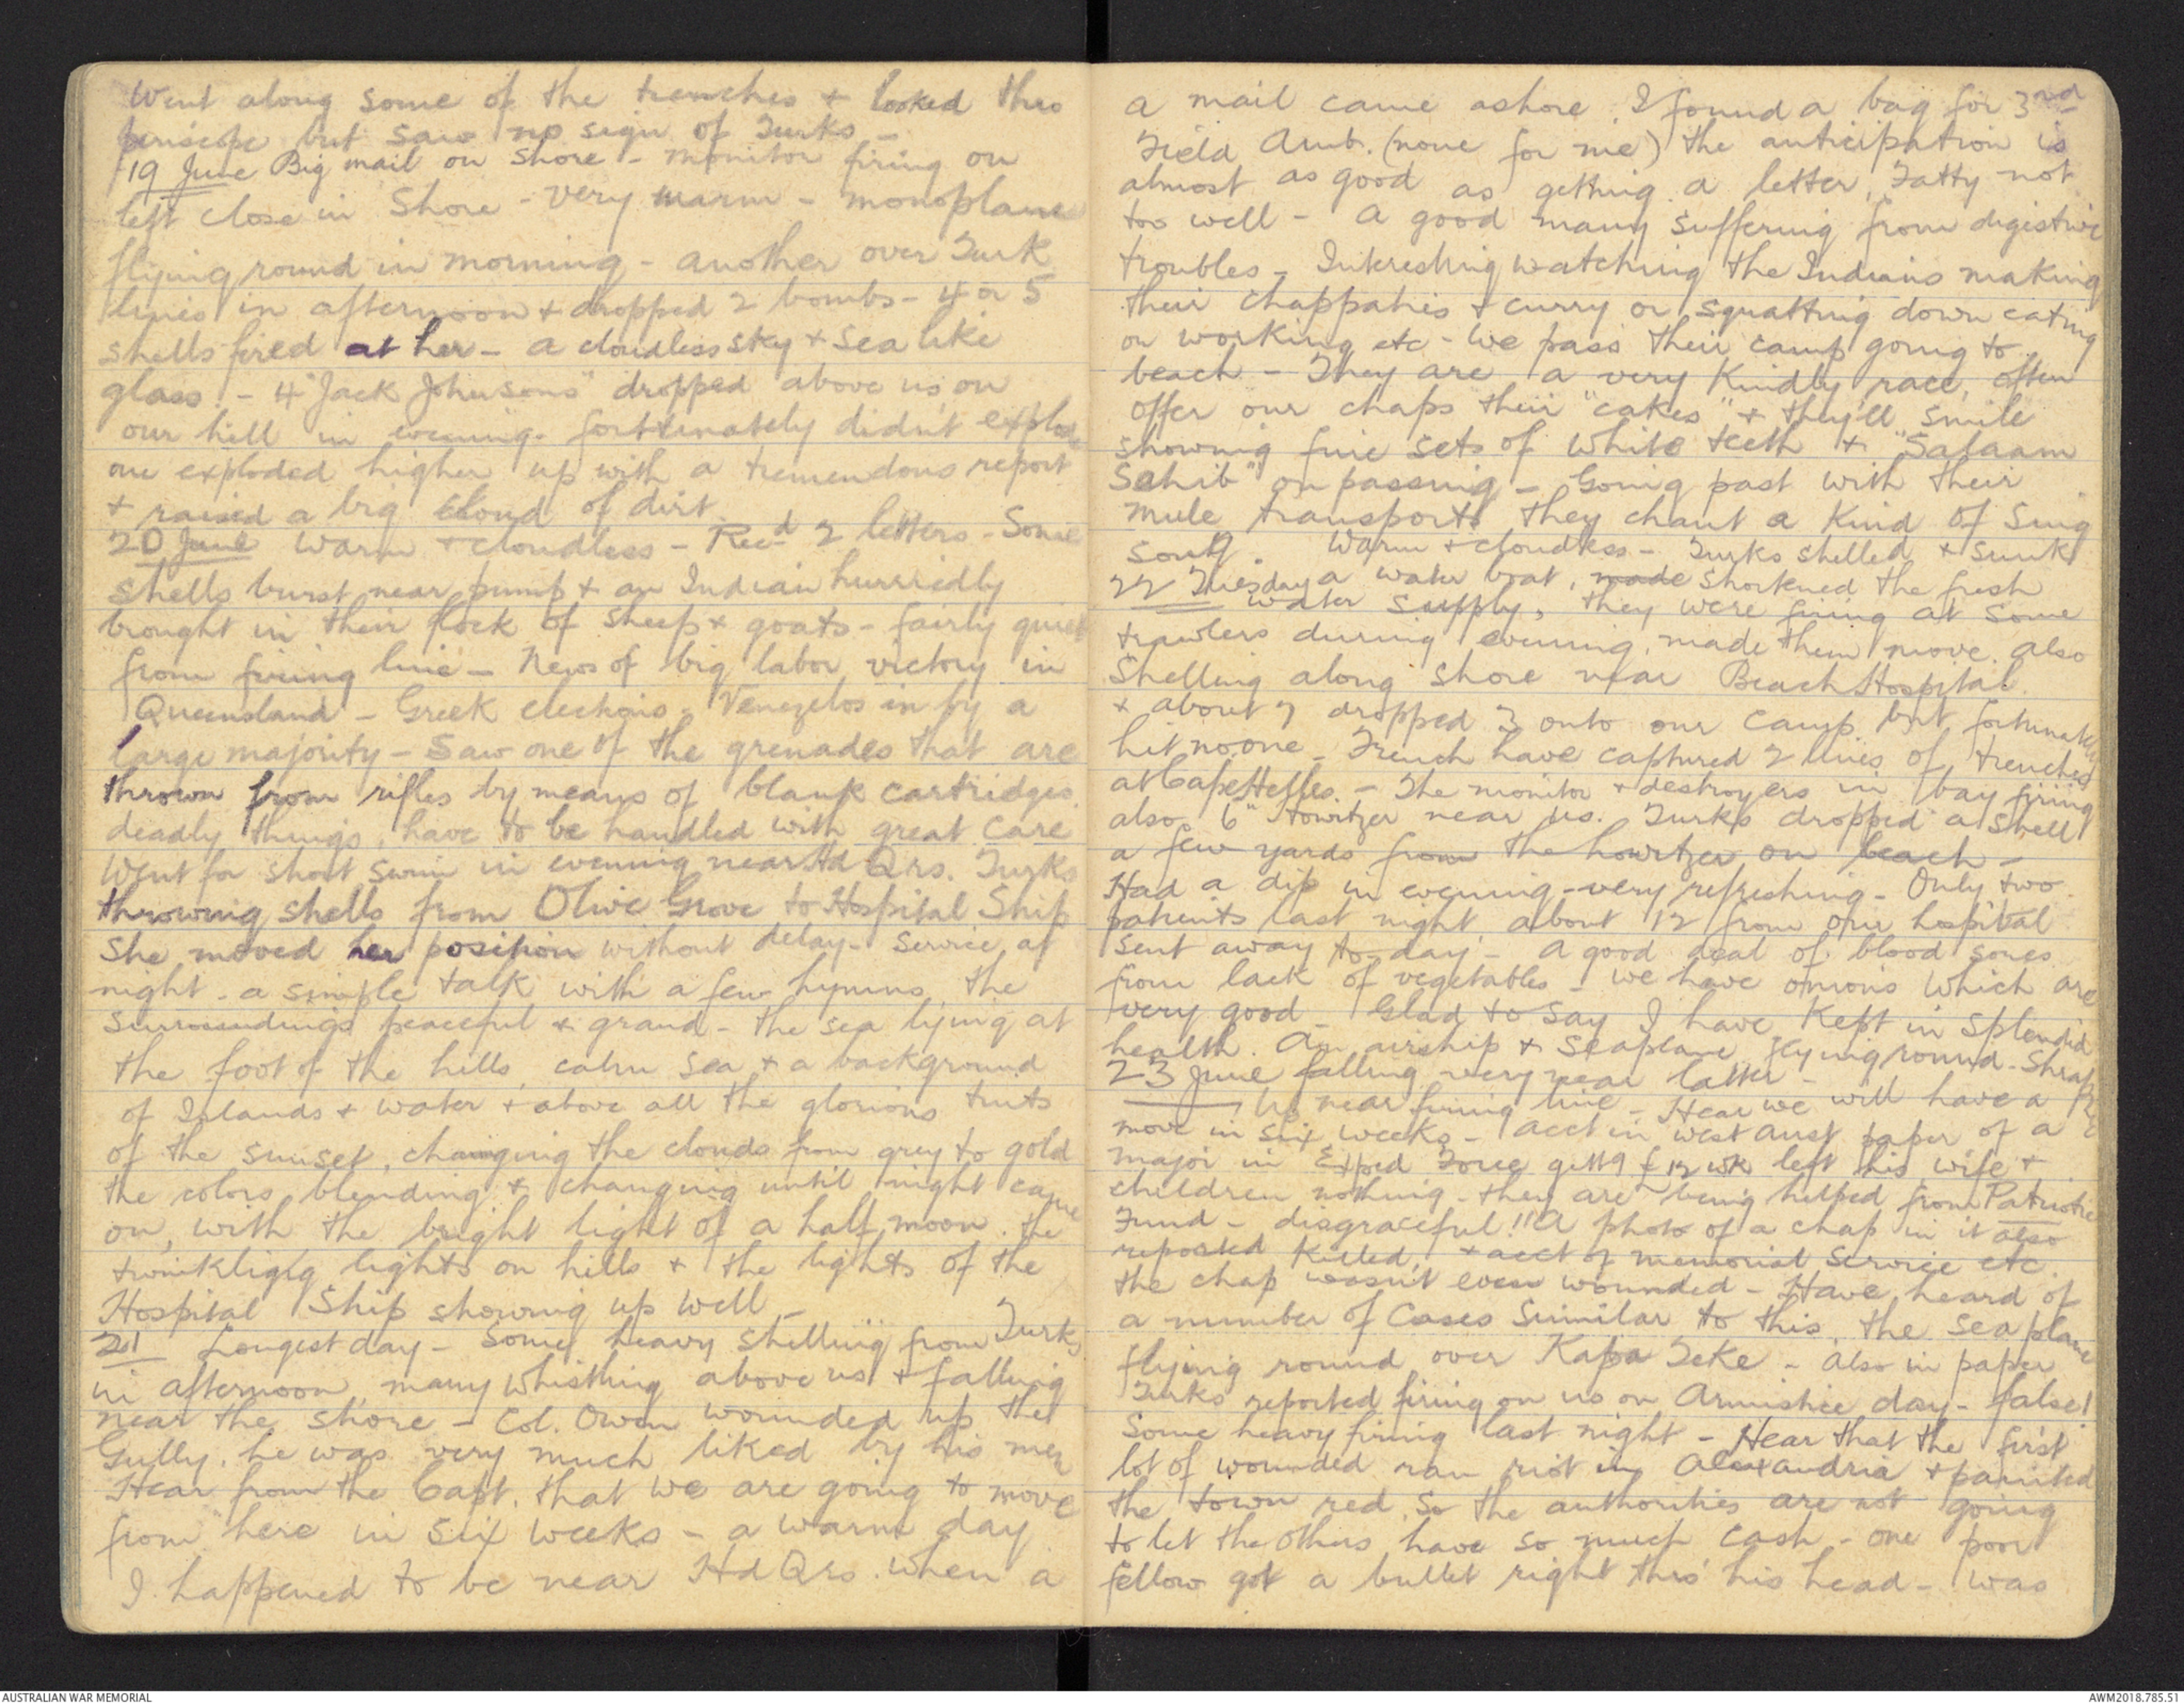 Went along some of the trenches + looked thro
periscope but saw no sign of Turks -
19 June Big mail on shore - monitor firing on
left close in Shore - very warm - monoplane
flying round in morning - another over Turk
lines in afternoon + dropped 2 bombs - 4 or 5
shells fired at her - a cloudless sky + sea like
glass - 4 "Jack Johnsons" dropped above us, on
our hill in evening. fortunately didn't explode
one exploded higher up with a tremendous report
+ raised a big cloud of dirt.
20 June Warm + cloudless - Recd 2 letters - Some
shells burst near pump + an Indian hurriedly
brought in their flock of sheep + goats - fairly quiet
from firing line - News of big labor victory in
Queensland - Greek elections - Venezelos in by a
large majority - Saw one of the grenades that are
thrown from rifles by means of blank cartridges
deadly things, have to be handled with great care
Went for short swim in evening near Hd Qrs. Turks
throwing shells from Olive Grove to Hospital Ship
She moved her position without delay - Service at
night - a simple talk with a few hymns, the
surroundings peaceful + grand - the sea lying at
the foot of the hills, calm sea + a background
of Islands + water + above all the glorious tints
of the sunset, changing the clouds from grey to gold
the colors blending + changing until night came
on, with the bright light of a half moon. the
twinkligig lights on hills + the lights of the
Hospital Ship showing up well -
21 Longest day - Some heavy shelling from Turks
in afternoon, many whistling above us + falling
near the shore - Col. Owen wounded up the
Gully, he was very much liked by his men
Hear from the Capt. that we are going to move
from here in six weeks - a warm day
I happened to be near Hd Qrs. when a
a mail came ashore. I found a bag for 3rd
Field Amb. (none for me) the anticipation is
almost as good as getting a letter, Fatty not
too well - A good many suffering from digestive
troubles - Interesting watching the Indians making
their chappaties + curry or squatting down eating
or working etc - We pass their camp going to
beach - They are a very kindly race, often
offer our chaps their "cakes" + they'll smile
showing fine sets of white teeth + "Salaam
Sahib" on passing - Going past with their
mule transports they chant a kind of sing
song. Warm + cloudless - Turks shelled + sunk
22 Tuesday a water boat, made shortened the fresh
water supply, they were firing at some
trawlers during evening, made them move. also
Shelling along shore near Beach Hospital
+ about 7 dropped 3 onto our camp but fortunately
hit no one - French have captured 2 lines of trenches
at Cape Helles. - The monitor + destroyers in bay firing
also 6" howitzer near us. Turks dropped a shell
a few yards from the howitzer on beach -
Had a dip in evening - very refreshing - Only two
patients last night, about 12 from our hospital
sent away to-day - A good deal of blood sores
from lack of vegetables - we have onions which are
very good - Glad to say I have kept in splendid
health. An airship + seaplane flying round - Shrap
23 June falling very near latter -
near firing line - Hear we will have a
move in six weeks - acct in West Aust paper of a
major in Exped Force gettg £12 wk left his wife +
children nothing - they are being helped from Patriotic
Fund - disgraceful!! A photo of a chap in it also
reported killed, + acct of memorial service etc.
the chap wasn't even wounded - Have heard of
a number of cases similar to this, the sea plane
flying round over Kapa Teke - also in paper
Turks reported firing on us on Armistice day - false!
Some heavy firing last night - Hear that the first
lot of wounded ran riot in Alexandria + painted
the town red, so the authorities are not going
to let the others have so much cash - one poor
fellow got a bullet right thro' his head - was
AUSTRALIAN WAR MEMORIAL
AWM2018.785.51